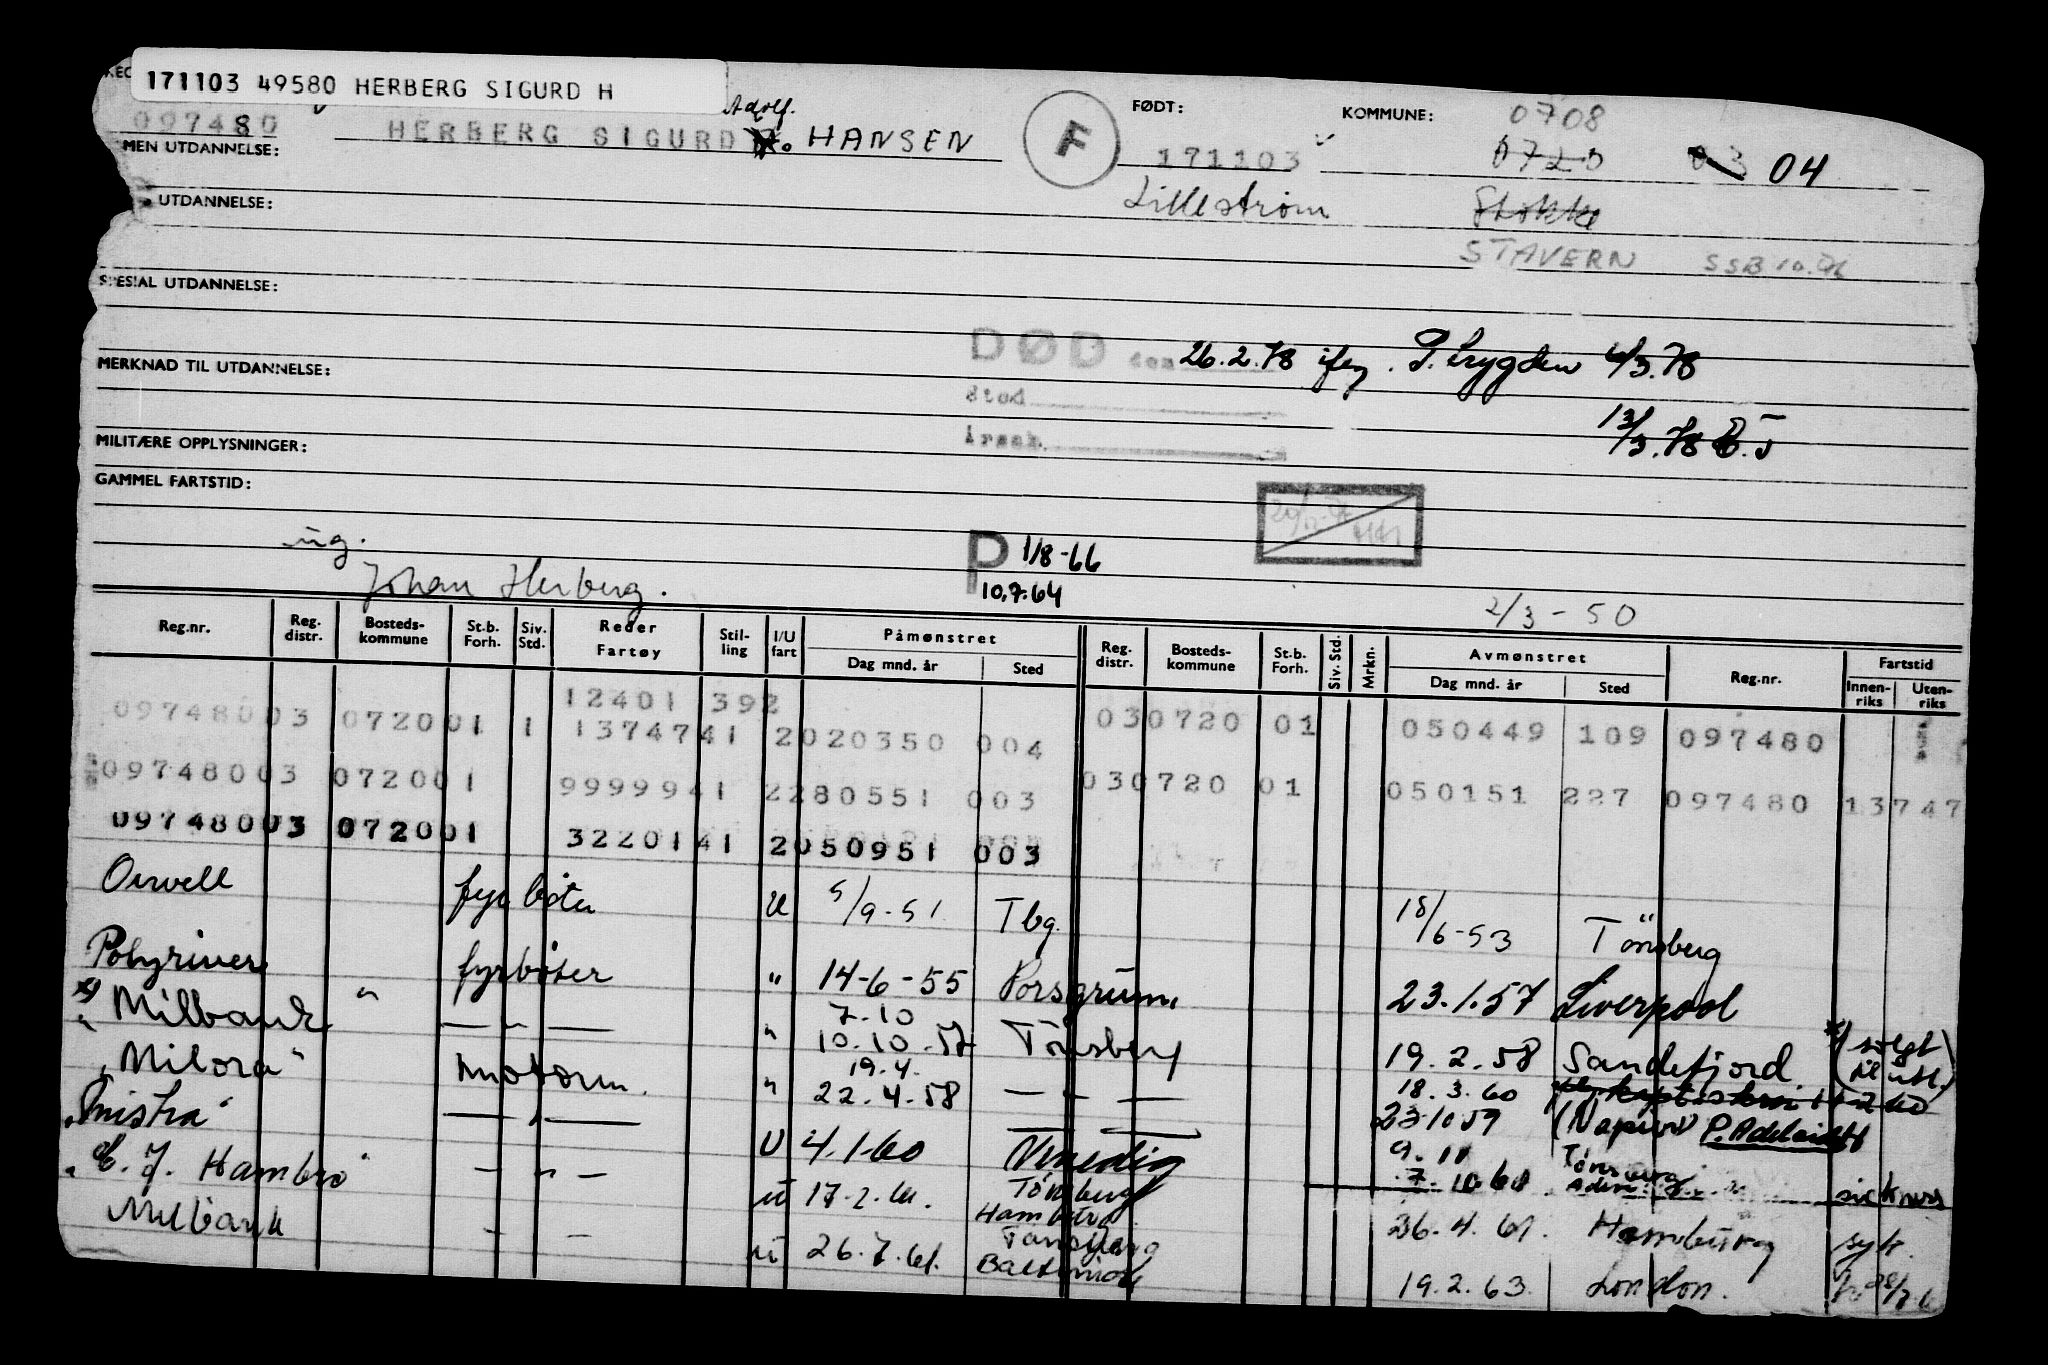 171103 49580 HERBERG SIGURD H
097480 HERBERG SIGURD Adolf. HANSEN
F
FØDT: 171103 Lillestrøm
KOMMUNE: 0708
0720 03 04
Stokke
STAVERN SSB 10.
MEN UTDANNELSE:
UTDANNELSE:
SPESIAL UTDANNELSE:
MERKNAD TIL UTDANNELSE:
MILITÆRE OPPLYSNINGER:
GAMMEL FARTSTID:
DØD den 26.2.78 iføg. P. trygden 6/3.78
Sted
Årsak
13/3.78
ug.
Johan Herberg.
P 1/8-66
10.7.64
2/3-50
Reg.nr. Reg. distr. Bosteds-kommune St.b. Forh. Siv. Std. Reder Fartøy Stil-ling I/U fart Påmønstret Dag mnd. år Sted Reg. distr. Bosteds-kommune St.b. Forh. Siv. Std. Mrkn. Avmønstret Dag mnd. år Sted Reg.nr. Fartstid Innen-riks Uten-riks
12401 392
09748003 072001 1 1374741 2020350 004 030720 01 050449 109 097480
09748003 072001 9999941 2280551 003 030720 01 050151 227 097480 13747
09748003 072001 3220141 2050951 003
Orwell fyrbøter U 5/9-51 Tbg. 18/6-53 Tönsberg
Polyriver fyrbøter " 14-6-55 Porsgrunn 23.1.57 Liverpool
7.10
Milbank " — " — " 10.10.57 Tönsberg 19.2.58 Sandefjord (solgt til utl.)
19.4.
"Milora" motorm. " 22.4.58 — " — 18.3.60
23 10 59 (Napier) P. Adelaide
"Mistra" — " — U 4.1.60 Venedig 9.11 Tönsberg
7.10.60 Aden sickness
"C. J. Hambro" — " — U 17.2.61. Tönsberg Hamburg 26.4.61. Hamburg syk.
Milbank — — U 26.7.61. Tønsberg Baltimore 19.2.63. London.